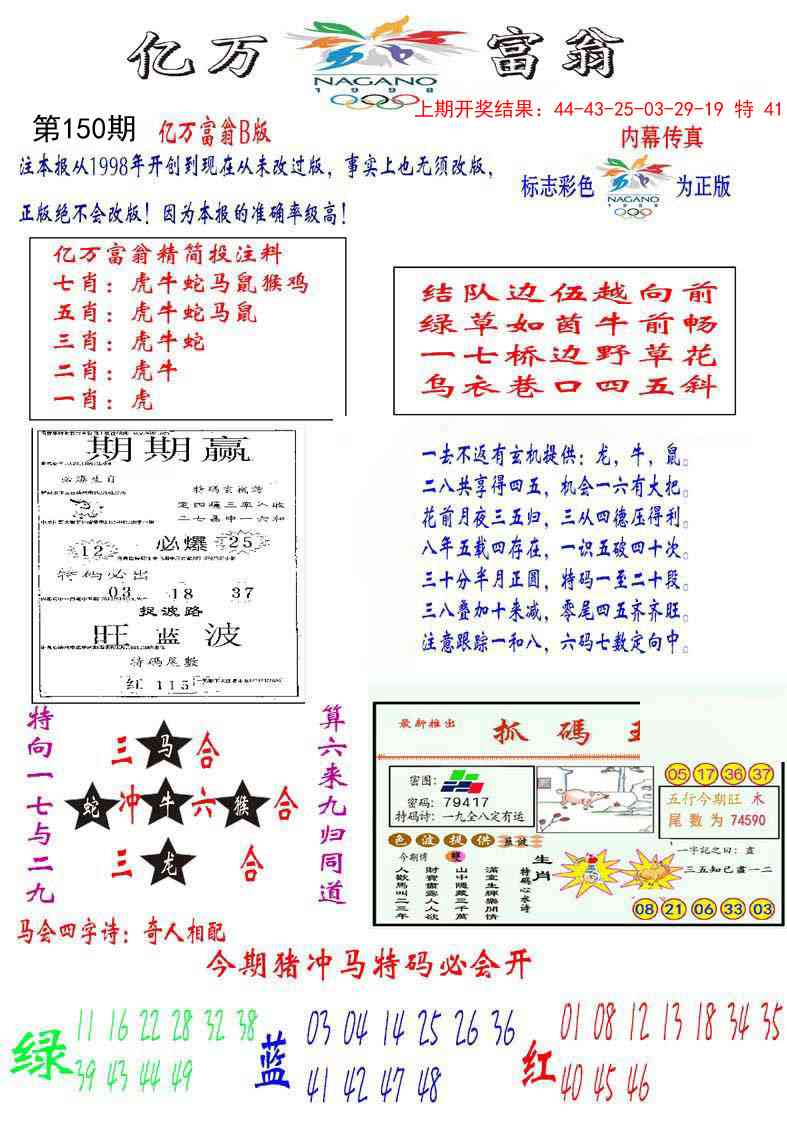 亿万
富翁
NAGANO
1998
上期开奖结果：44-43-25-03-29-19 特 41
第150期 亿万富翁B版
内幕传真
注本报从1998年开创到现在从未改过版，事实上也无须改版，
正版绝不会改版！因为本报的准确率级高！
标志彩色
NAGANO
1998
为正版
亿万富翁精简投注料
七肖：虎牛蛇马鼠猴鸡
五肖：虎牛蛇马鼠
三肖：虎牛蛇
二肖：虎牛
一肖：虎
结队边伍越向前
绿草如茵牛前畅
一七桥边野草花
乌衣巷口四五斜
期期赢
必爆生自
12
必爆
25
特码必出
03 18 37
捉波路
旺蓝波
特码尾数
红 115
一去不返有玄机提供：龙，牛，鼠。
二八共享得四五，机会一六有大把。
花前月夜三五归，三从四德压得利。
八年五载四存在，一识五破四十次。
三十分半月正圆，特码一至二十段。
三八叠加十来减，零尾四五齐齐旺。
注意跟踪一和八，六码七数定向中。
特向一七与二九
三 马 合
蛇 冲 牛 六 猴 合
三 龙 合
算六来九归同道
最新推出
抓碼
密图：
密码：79417
特码诗：一九全八定有运
05 17 36 37
五行今期旺 木
尾数为 74590
色波提供 蓝波
今期博 雙
人歡馬叫二三年
財寶盡露人人欲
山中隱藏三千萬
滿堂生輝樂開情
特码心水诗
生肖
一字記之曰：盡
三五知己盡一二
08 21 06 33 03
马会四字诗：奇人相配
今期猪冲马特码必会开
绿
11 16 22 28 32 38
39 43 44 49
蓝
03 04 14 25 26 36
41 42 47 48
红
01 08 12 13 18 34 35
40 45 46